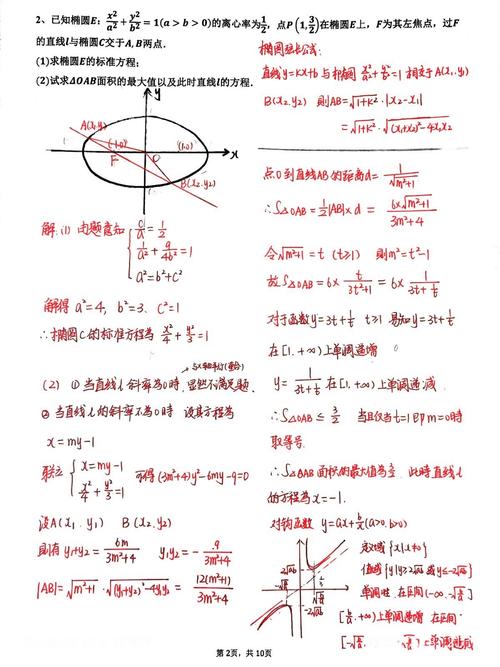 2、已知椭圆E: x²/a² + y²/b² = 1(a > b > 0)的离心率为1/2, 点P(1, 3/2)在椭圆E上, F为其左焦点, 过F
的直线l与椭圆C交于A, B两点.
(1)求椭圆E的标准方程;
(2)试求△OAB面积的最大值以及此时直线l的方程.
y
A(x,y)
(-1,0)
F
O
(1,0)
x
B(x₂,y₂)
解: (1) 由题意知 { c/a = 1/2
1/a² + 9/4b² = 1
a² = b² + c²
解得 a²=4, b²=3. C²=1
∴椭圆C的标准方程为 x²/4 + y²/3 = 1
与x轴平行(重合)
(2) ① 当直线l斜率为0时, 显然不满足题.
② 当直线l的斜率不为0时 设其方程为
x = my-1
联立 { x = my-1
x²/4 + y²/3 = 1
可得 (3m²+4)y²-6my-9=0
设A(x₁, y₁) B(x₂, y₂)
则有 y₁+y₂ = 6m/3m²+4 y₁y₂ = -9/3m²+4
|AB| = √m²+1 · √(y₁+y₂)²-4y₁y₂ = 12(m²+1)/3m²+4
椭圆弦长公式:
直线y=kx+b 与椭圆 x²/a² + y²/b² = 1 相交于A(x₁,y₁)
B(x₂,y₂) 则AB = √1+k² · |x₂-x₁|
= √1+k² · √(x₁+x₂)²-4x₁x₂
点O到直线AB的距离d = 1/√m²+1
∴S△OAB = 1/2|AB|×d = 6×√m²+1/3m²+4
令√m²+1 = t (t≥1) 则m²=t²-1
故S△OAB = 6× t/3t²+1 = 6× 1/3t+1/t
对于函数y=3t+1/t t≥1 易知y=3t+1/t
在[1,+∞)上单调递增
y = 1/3t+1/t 在[1,+∞)上单调递减
∴S△OAB ≤ 3/2 当且仅当t=1即m=0时
取得等号.
∴S△OAB面积的最大值为3/2 此时直线l
的方程为x=-1.
对钩函数 y=ax+b/x(a>0,b>0)
2√ab
-√b/a
√b/a
-2√ab
定义域 {x|x≠0}
值域 {y|y≥2√ab 或y≤-2√ab}
单调性 在区间(-∞,-√b/a]
[√b/a,+∞)上单调递增 在区间
[-√b/a, √b/a]上单调递减
第 2页, 共 10页